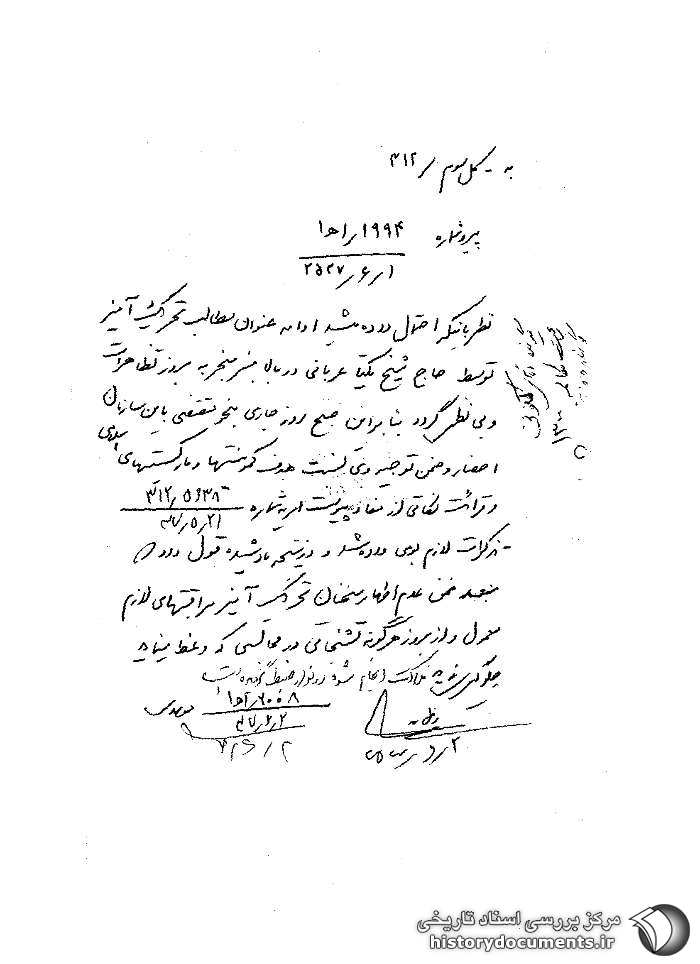 به - کل سوم / ۳۱۲
پیرو شماره ۱۹۹۴ / ۱ ه‍ ۱
۲۵۳۷/۶/۱
نظر باینکه احتمال داده میشد ادامه عنوان مطالب تحریک آمیز
توسط حاج شیخ یکتا عربانی در بالا منبر منجر به بروز تظاهرات
و بی نظمی گردد بنابراین صبح روز جاری بنحو مقتضی باین سازمان
احضار و ضمن توجیه وی نسبت هدف کمونیستها و مارکسیستهای اسلامی
و قرائت نکاتی از مفاد پیوست امریه شماره ۳۱۲/۵۶۳۸
۳۷/۵/۲۱
تذکرات لازم بوی داده شد و در نتیجه یاد شده قول داد
منبعد ضمن عدم اظهار سخنان تحریک آمیز مراقبتهای لازم
معمول و از بروز هرگونه تشنجاتی در مجالسی که وعظ مینماید
جلوگیری نماید مذاکرات انجام شده در نوار ضبط گردیده است
۲۰۰۸ / ۱ ه‍ ۱
۳۷/۶/۲
مرکز بررسی اسناد تاریخی
historydocuments.ir